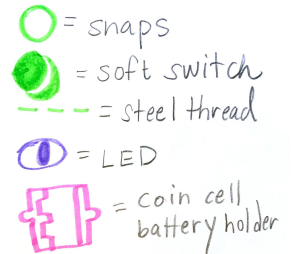 = snaps
= soft switch
= steel thread
= LED
= coin cell
battery holder